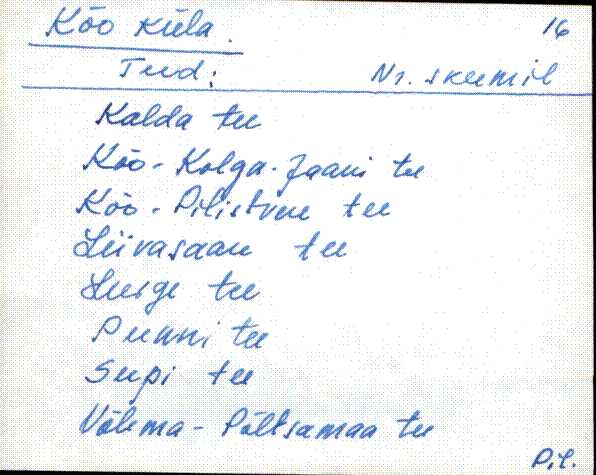 Kõo küla. 16
Teed: Nr. skeemil
Kalda tee
Kõo - Kolga-Jaani tee
Kõo - Pilistvere tee
Liivasaare tee
Surge tee
Punni tee
Sepi tee
Võhma - Põltsamaa tee
P.L.